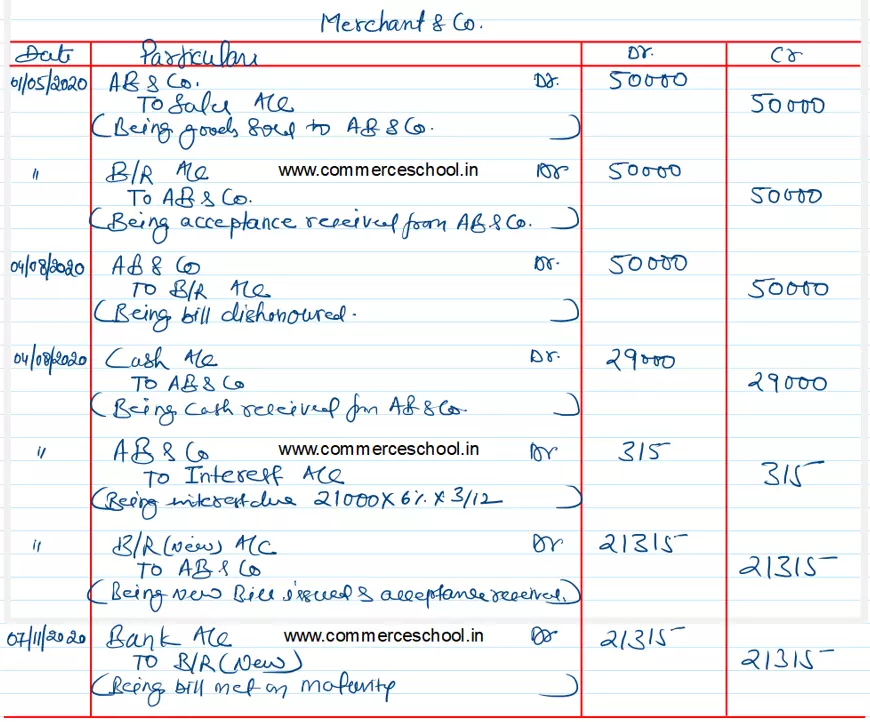 Merchant & Co.
Date Particulars Dr. Cr
01/05/2020 AB & Co. Dr. 50000
To Sales A/c 50000
(Being goods sold to AB & Co. )
" B/R A/c www.commerceschool.in Dr 50000
To AB & Co. 50000
(Being acceptance received from AB & Co. )
04/08/2020 AB & Co Dr. 50000
To B/R A/c 50000
(Being bill dishonoured. )
04/08/2020 Cash A/c Dr. 29000
To AB & Co 29000
(Being Cash received from AB & Co. )
" AB & Co www.commerceschool.in Dr 315
To Interest A/c 315
(Being interest due 21000 X 6% X 3/12 )
" B/R (New) A/c Dr 21315
To AB & Co 21315
(Being New Bill issued & acceptance received.)
07/11/2020 Bank A/c www.commerceschool.in Dr 21315
To B/R (New) 21315
(Being bill met on maturity )